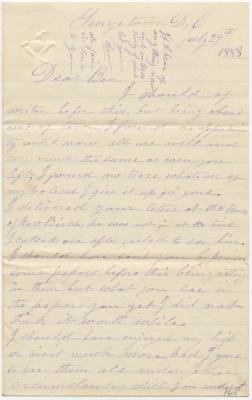 Georgetown, D, C
July 29th
1883
If I hear of
any thing
Dear Ben
I should of
writen before this, but being about
out of town I found no opportunity
until now all are well and
as you
left, I found no trace whatever of
my valese I give it up for gone.
I delivered your letter at the Firm
of Mr Birth he was not in at the time
I called nor after failed to see him.
I should have sent you of
some papers before this being nothing
in them but what you see in
the papers you get I did not
think it worth while.
I should have enjoyed my trip
or visit much more had I gone
to see them all under other
circumstances which you under
165